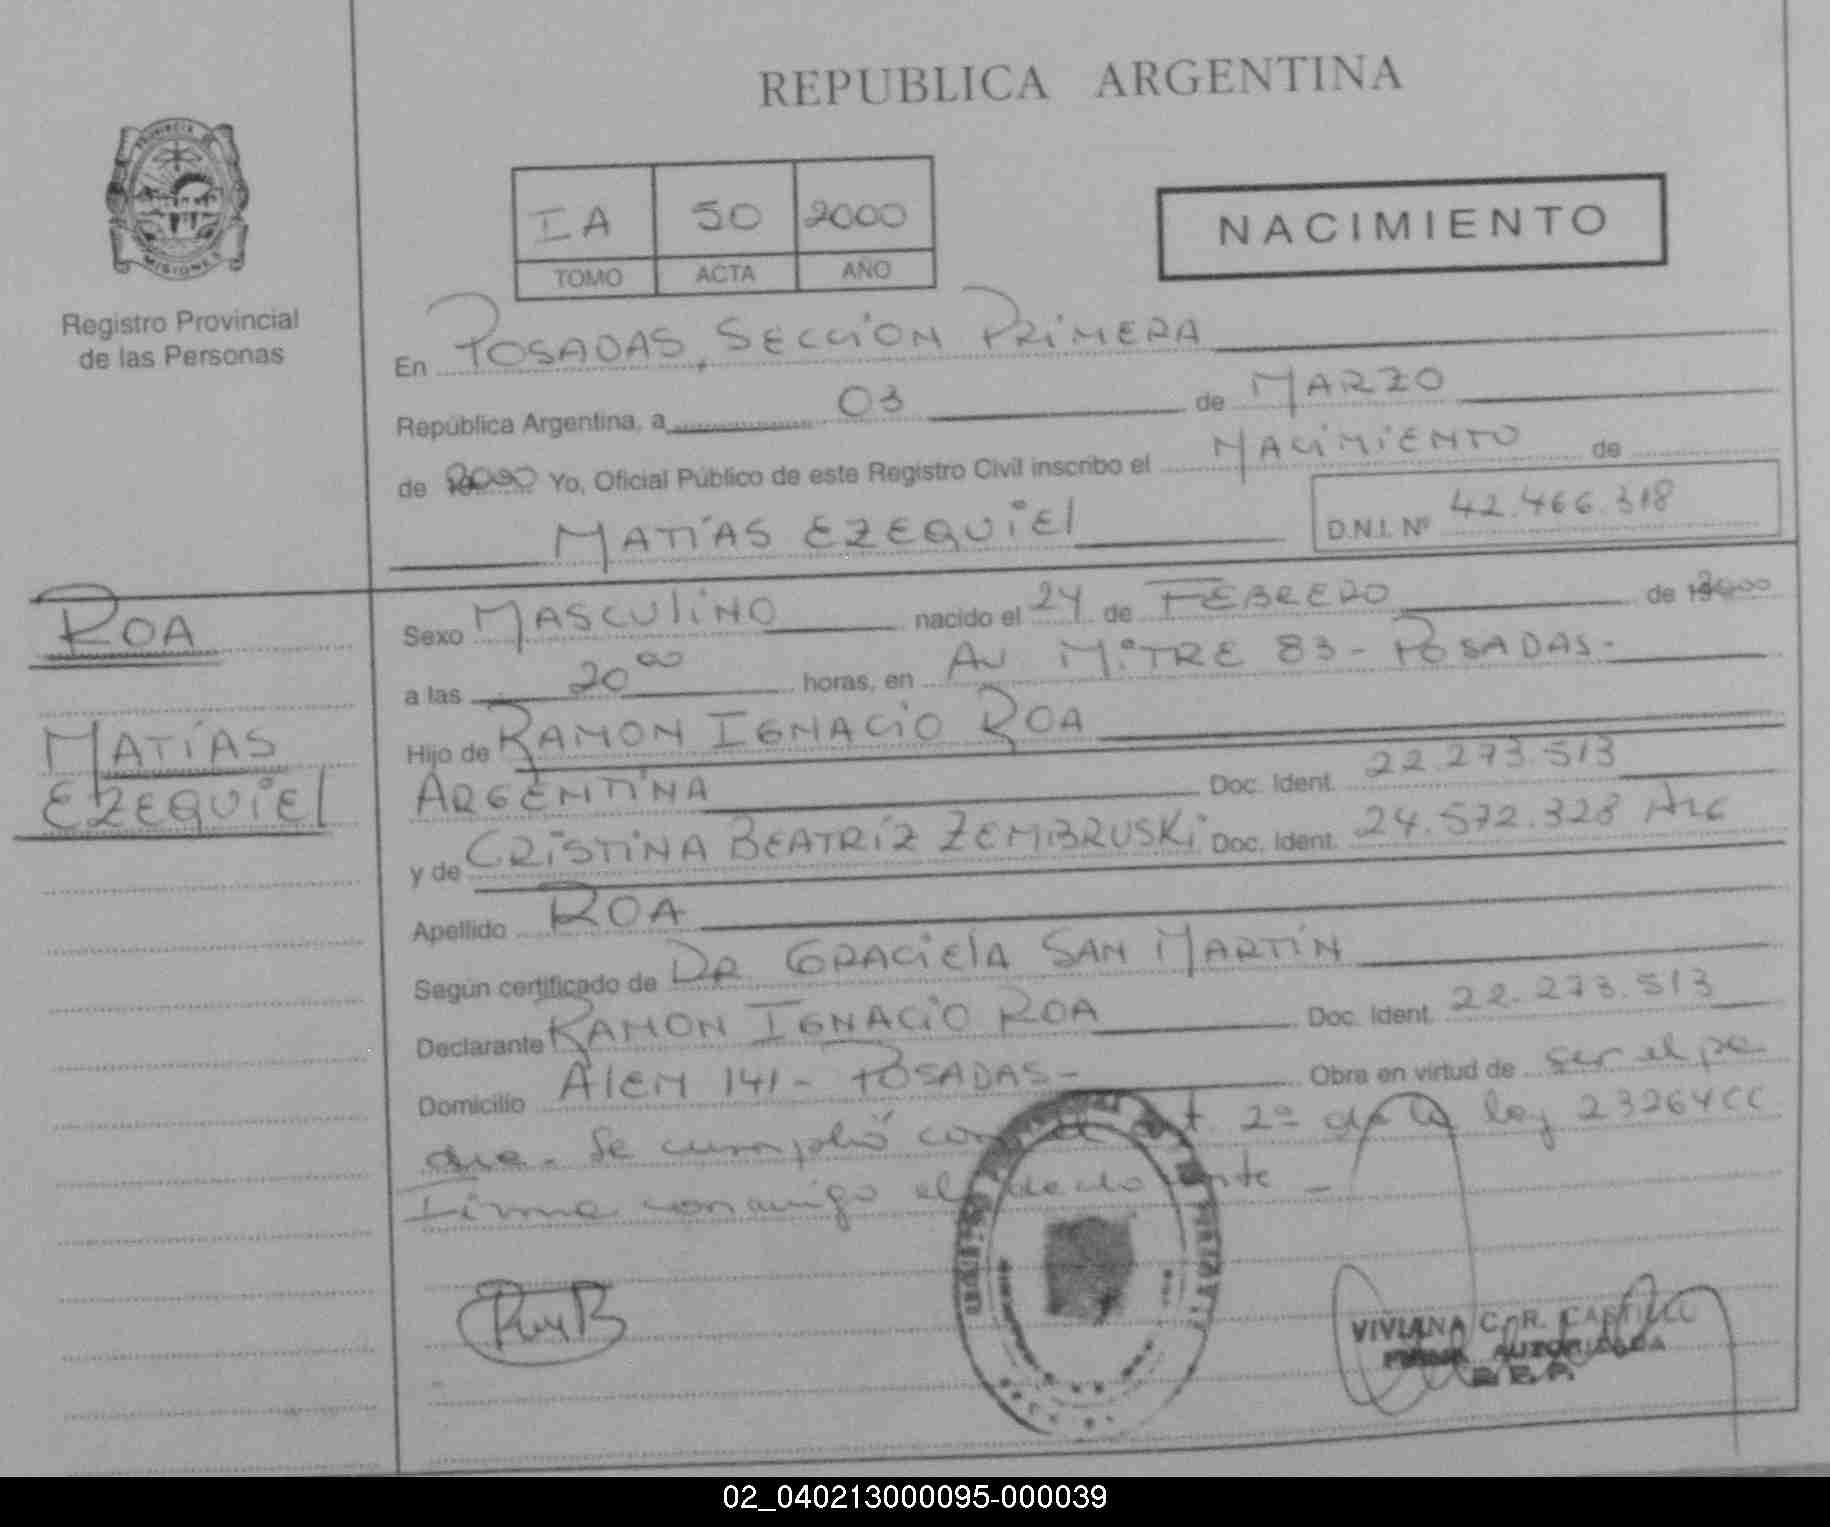 REPUBLICA ARGENTINA
PROVINCIA DE
MISIONES
Registro Provincial
de las Personas
IA 50 2000
TOMO ACTA AÑO
NACIMIENTO
En POSADAS, SECCION PRIMERA
República Argentina, a 03 de MARZO
de 2000 Yo, Oficial Público de este Registro Civil inscribo el NACIMIENTO de
MATÍAS EZEQUIEL D.N.I. Nº 42.466.318
ROA
MATÍAS
EZEQUIEL
Sexo MASCULINO nacido el 24 de FEBRERO de 2000
a las 20 00 horas, en AV MITRE 83 - POSADAS -
Hijo de RAMON IGNACIO ROA
ARGENTINA Doc. Ident. 22.273.513
y de CRISTINA BEATRIZ ZEMBRUSKI Doc. Ident. 24.572.328 ARG
Apellido ROA
Según certificado de DR GRACIELA SAN MARTÍN
Declarante RAMON IGNACIO ROA Doc. Ident. 22.273.513
Domicilio ALEM 141 - POSADAS - Obra en virtud de ser el pa
dre. Se cumplió con el Art 2º de la ley 23264 CC
Firma conmigo el declarante -
VIVIANA C. R. CASTILLO
FIRMA AUTORIZADA
02_040213000095-000039